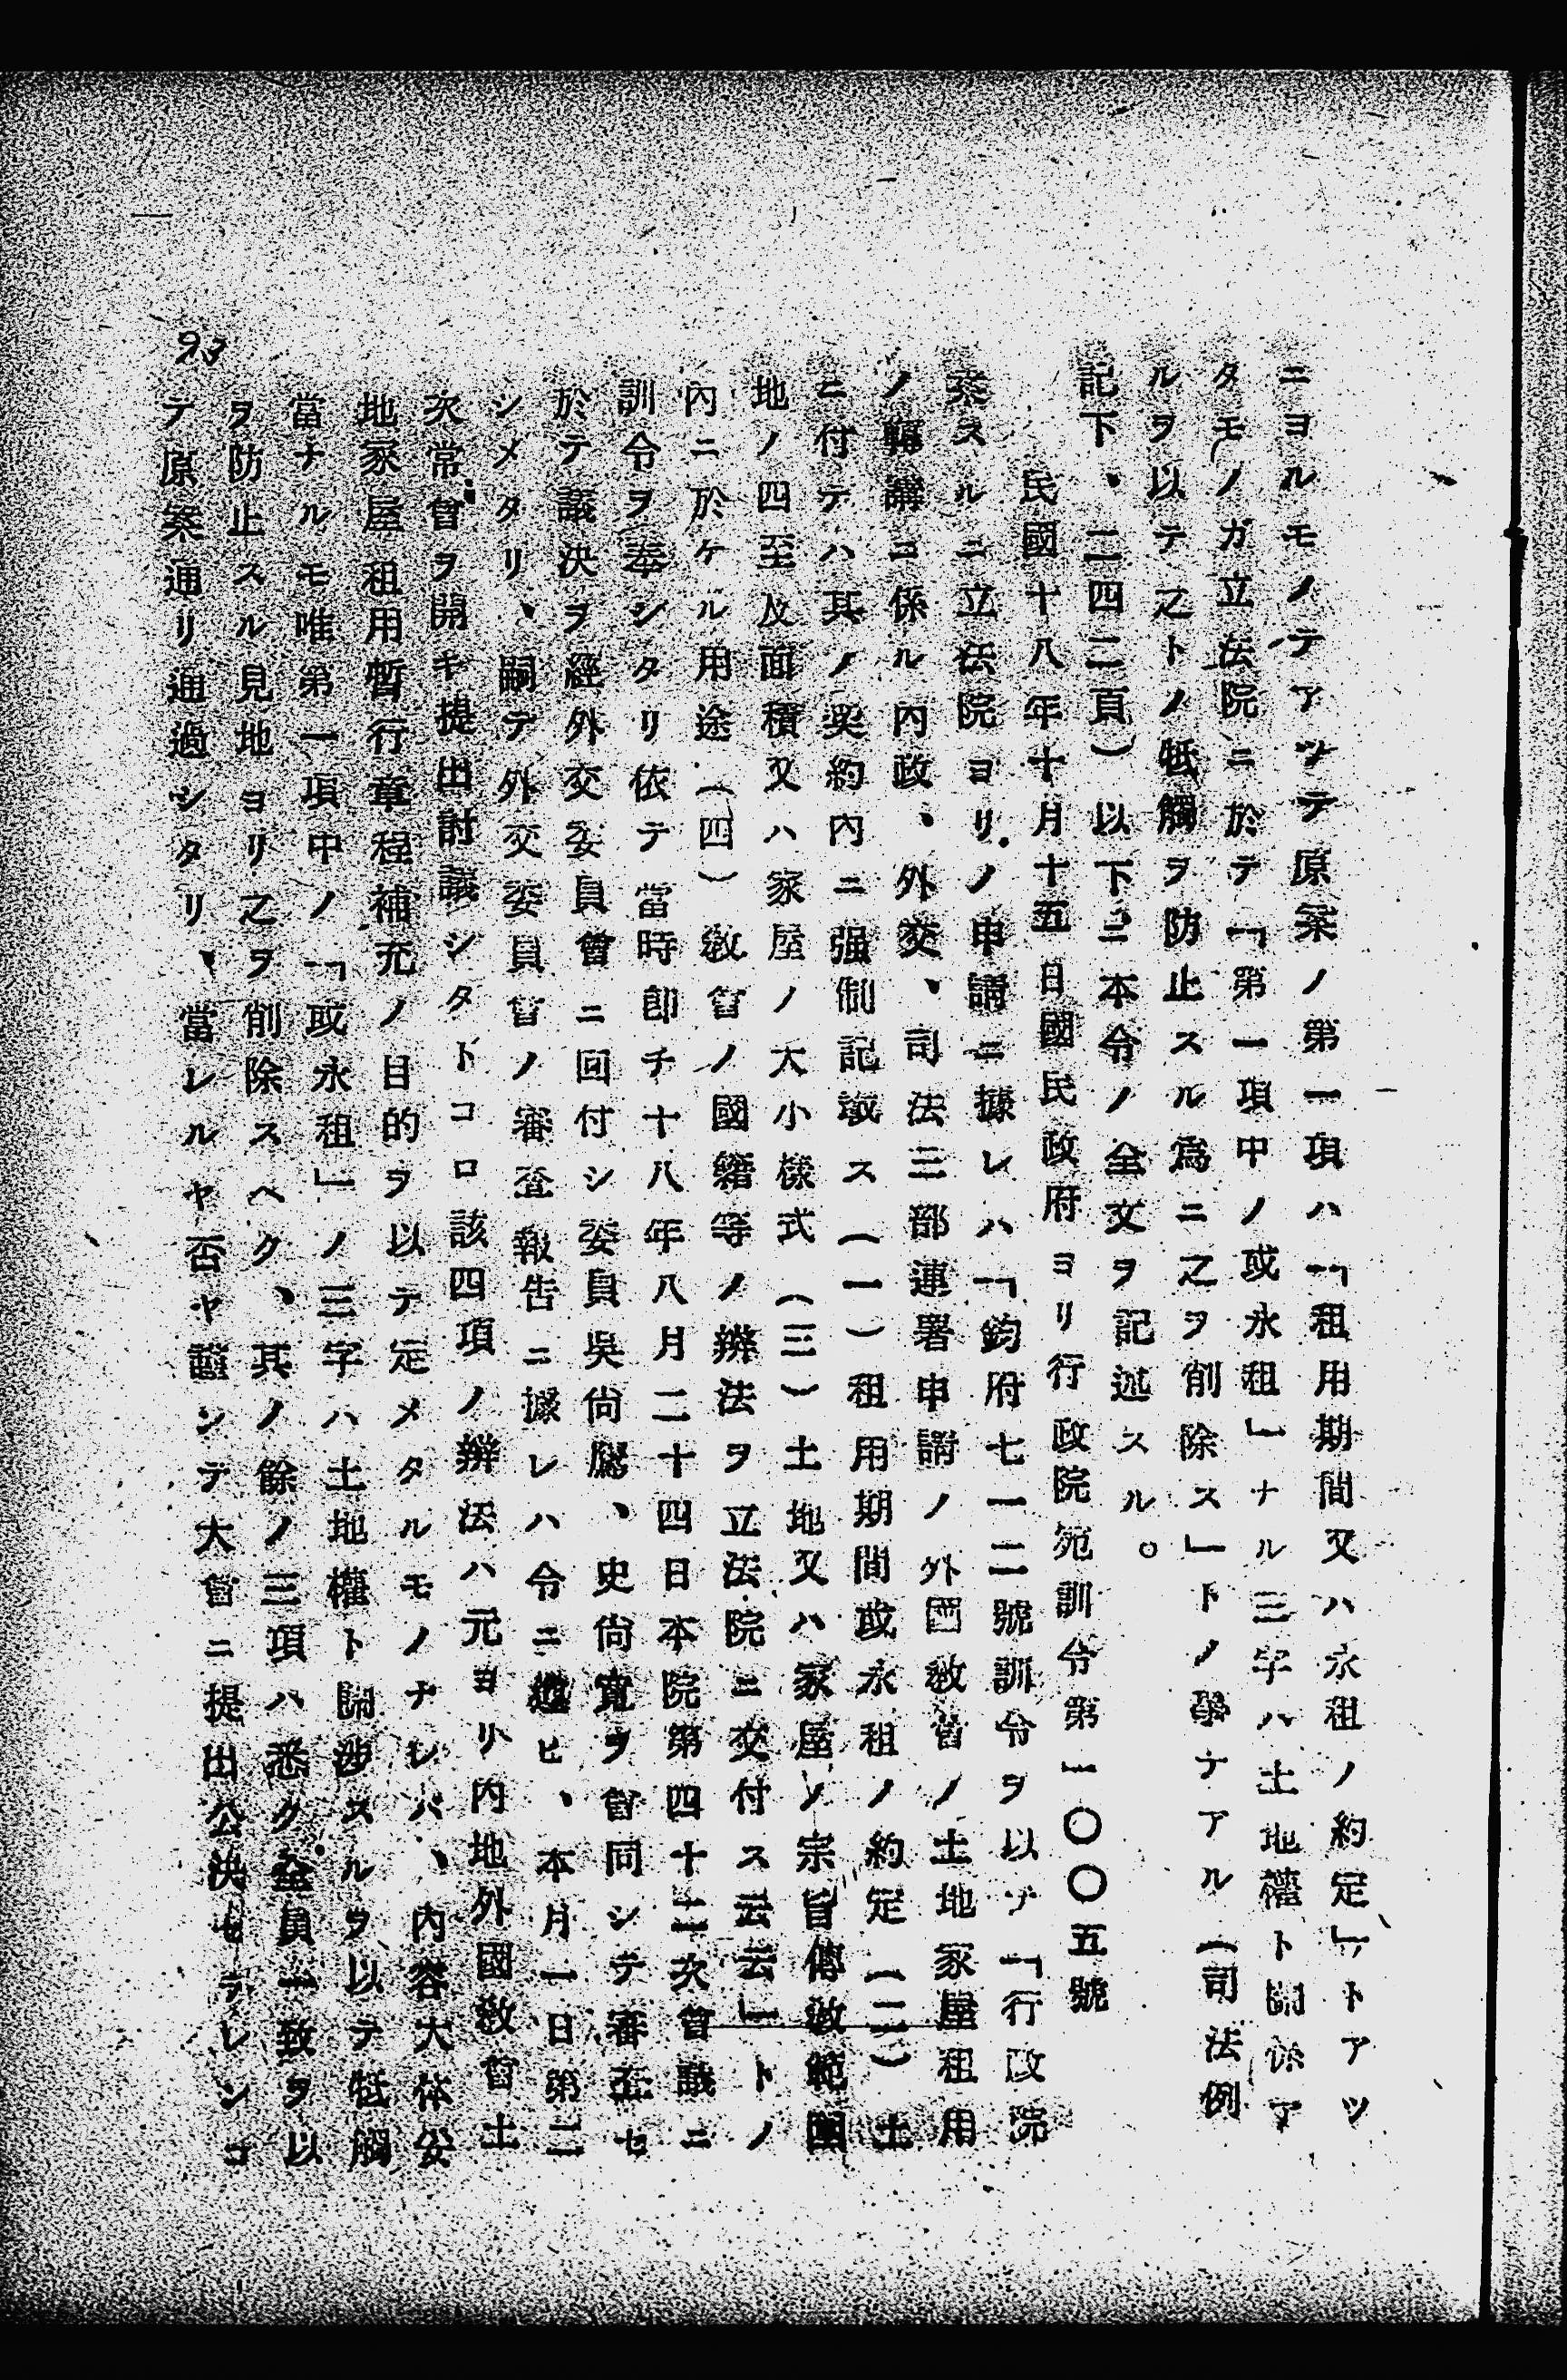 ニヨルモノテアツテ原案ノ第一項ハ「租用期間又ハ永租ノ約定」トアツ
タモノガ立法院ニ於テ「第一項中ノ或永租」ナル三字ハ土地權ト關係ア
ルヲ以テ之トノ牴觸ヲ防止スル爲ニ之ヲ削除ス」トノ擧ナアル（司法例
記下、二四二頁）以下ニ本令ノ全文ヲ記述スル。
民國十八年十月十五日國民政府ヨリ行政院宛訓令第一〇〇五號
案スルニ立法院ヨリノ申請ニ據レハ「鈞府七一二號訓令ヲ以テ「行政院
ノ轉請ニ係ル內政、外交、司法三部連署申請ノ外國敎會ノ土地家屋租用
ニ付テハ其ノ契約內ニ强制記載ス（一）租用期間或永租ノ約定（二）土
地ノ四至及面積又ハ家屋ノ大小樣式（三）土地又ハ家屋ノ宗旨傳敎範圍
內ニ於ケル用途（四）敎會ノ國籍等ノ辦法ヲ立法院ニ交付ス云云」トノ
訓令ヲ奉シタリ依テ當時卽チ十八年八月二十四日本院第四十二次會議ニ
於テ議決ヲ經外交委員會ニ回付シ委員吳尙鷹、史尙寬ヲ會同シテ審査セ
シメタリ、嗣テ外交委員會ノ審査報告ニ據レハ令ニ遵ヒ、本月一日第二
次常會ヲ開キ提出討議シタトコロ該四項ノ辦法ハ元ヨリ內地外國敎會土
地家屋租用暫行章程補充ノ目的ヲ以テ定メタルモノナレバ、內容大体妥
當ナルモ唯第一項中ノ「或永租」ノ三字ハ土地權ト關涉スルヲ以テ牴觸
ヲ防止スル見地ヨリ之ヲ削除スヘク、其ノ餘ノ三項ハ悉ク全員一致ヲ以
テ原案通リ通過シタリ、當レルヤ否ヤ謹ンテ大會ニ提出公決セラレンコ
93